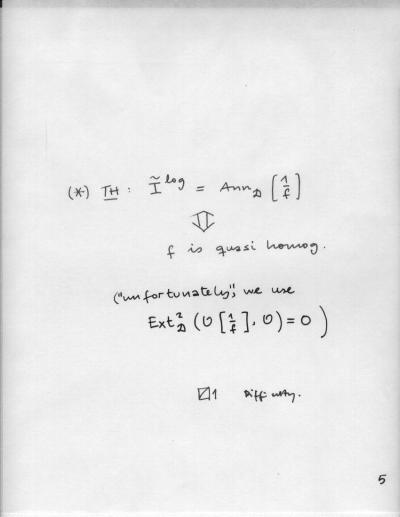 (*) TH : Ĩ^log = Ann_D [1/f]
⇕
f is quasi homog.
("unfortunately", we use
Ext²_D (O [1/f], O) = 0 )
1 Difficulty.
5